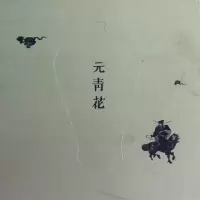 元青花